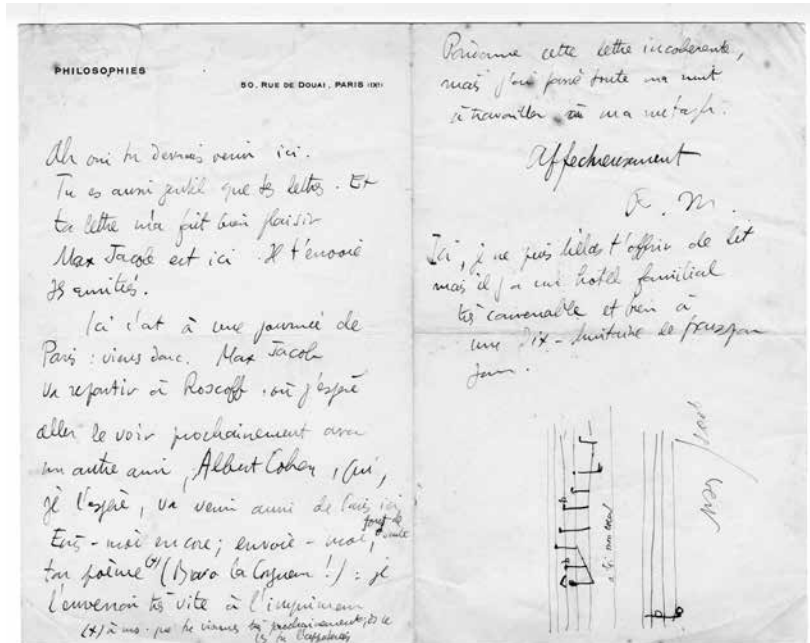 PHILOSOPHIES
50, RUE DE DOUAI, PARIS (IXe)
Ah oui tu devrais venir ici.
Tu es aussi gentil que tes lettres. Et
ta lettre m'a fait bien plaisir
Max Jacob est ici. Il t'envoie
ses amitiés.
Ici c'est à une journée de
Paris : viens donc. Max Jacob
va repartir à Roscoff où j'espère
aller le voir prochainement avec
un autre ami, Albert Cohen, qui,
je l'espère, va venir aussi de Paris ici
Ecris-moi encore; envoie-moi, tout de suite
ton poème (x) (Bravo la !) : je
l'enverrai très vite à l'imprimeur
(x) à moins que tu viennes très prochainement,
tu l'apporteras
Pardonne cette lettre incohérente,
mais j'ai passé toute ma nuit
à travailler à ma métaph.
Affectueusement
P. M.
Ici, je ne puis hélas t'offrir de lit
mais il y a un hôtel familial
très convenable et bien à
une dix-huitaine de francs par
jour.